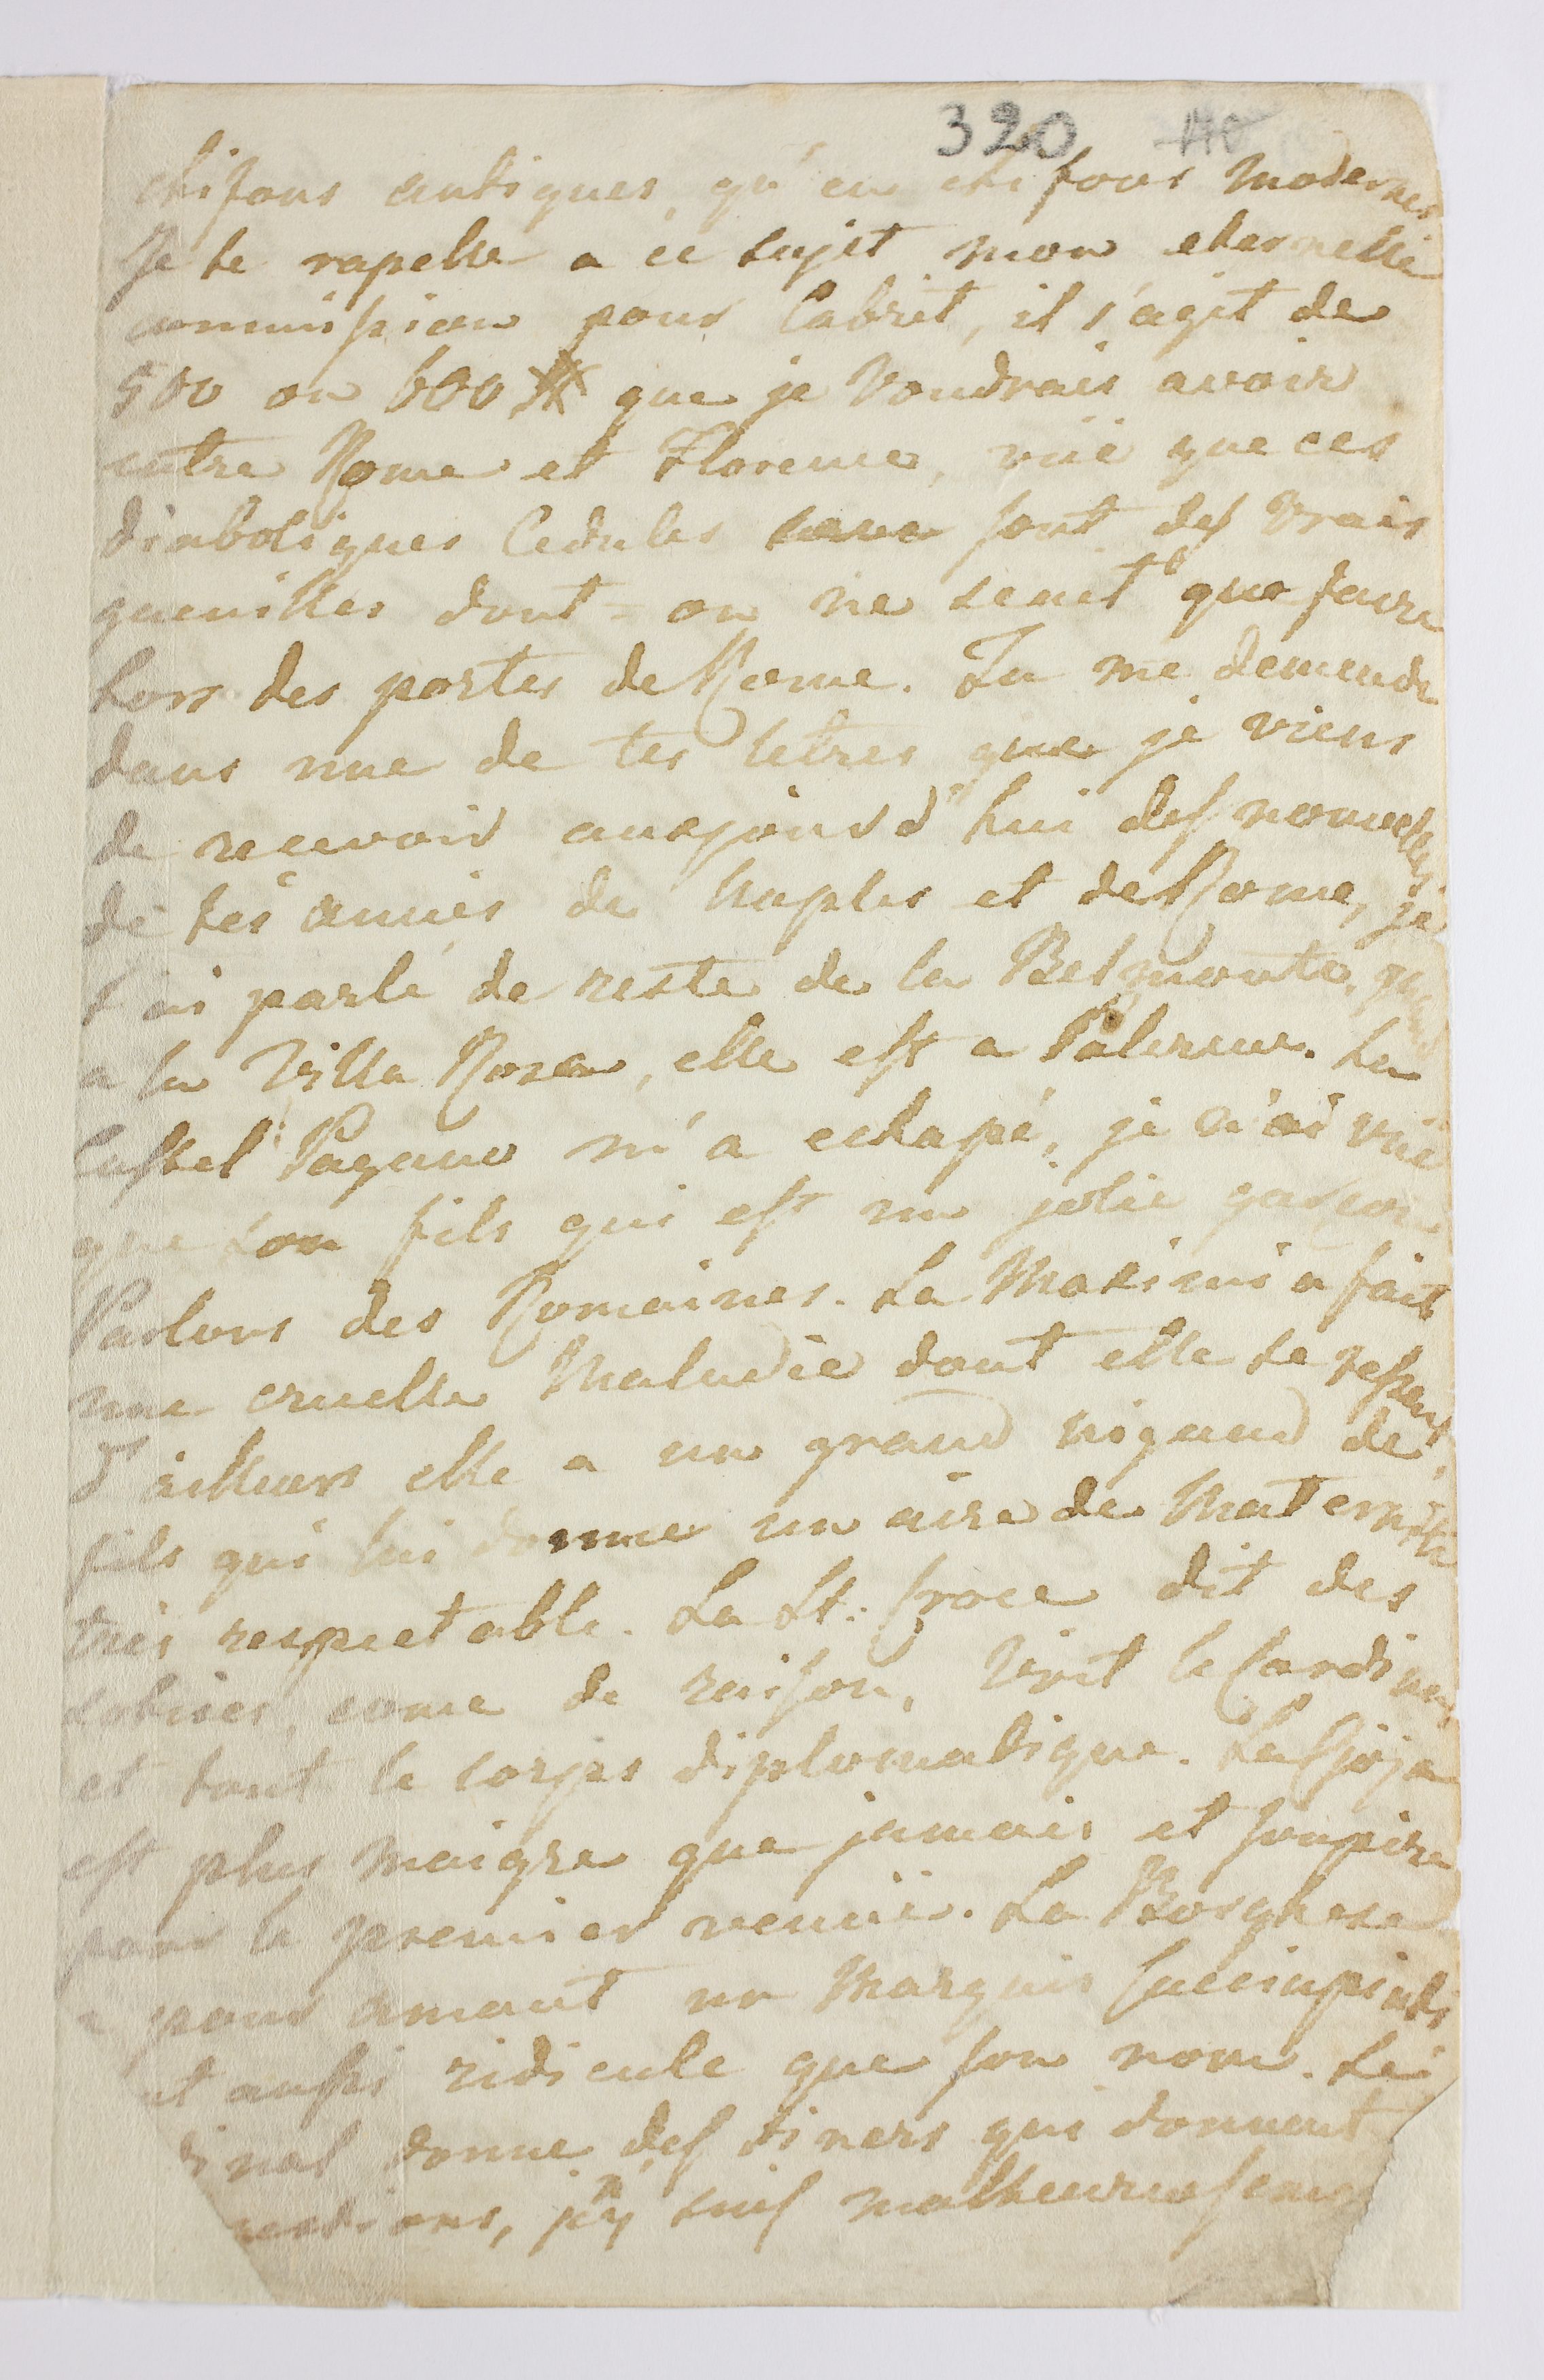 320 110
chifons antiques, qu'en chifons modernes
Je te rapelle a ce sujet mon eternelle
commission pour Cabrit, il s'agit de
500 ou 600 # que je voudrais avoir
entre Rome et Florence, vüe que ces
diaboliques Cedules sont des vrais
guenilles dont-on ne scait que faire
hors des portes de Rome. Tu me demande
dans une de tes lettres que je viens
de recevoir aujourd'hui des nouvelles
de tes amies de Naples et de Rome, je
t'ai parlé de reste de la Belmonte, quand
a la Villa Rosa, elle est a Palerme. La
Castel Pagano m'a echapé, je n'ai vüe
que son fils qui est un jolie garçon
Parlons des Romaines. La Massimi a fait
une cruelle Maladie dont elle se ressent,
d'ailleurs elle a un grand nigaud de
fils qui lui donne un aire de Maternité
très respectable. La St: Croce dit des
sotises, come de raison, voit le Cardinal
et tout le corps diplomatique. La
est plus maigre que jamais et soupire
pour le premier venüe. La Borghese
a pour amant un Marquis
aussi ridicule que son nom. Le
dinal donne des diners qui donnent
j'y suis malheureusement